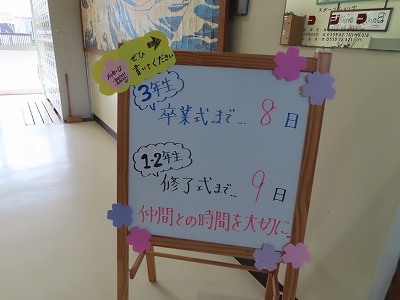 ぜひ
書いてください
メッセージ
3年生
卒業式まで… 8日
1・2年生
修了式まで… 9日
仲間との時間を大切に